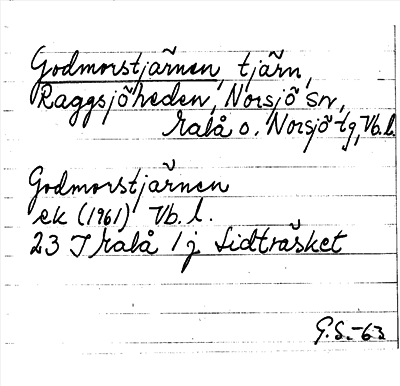 Godmorstjärnen, tjärn,
Raggsjöheden, Norsjö sn,
Malå o. Norsjö tg, Vb.l.
Godmorstjärnen
ek (1961) Vb. l.
23 I Malå 1j Lidträsket
G.S.-63